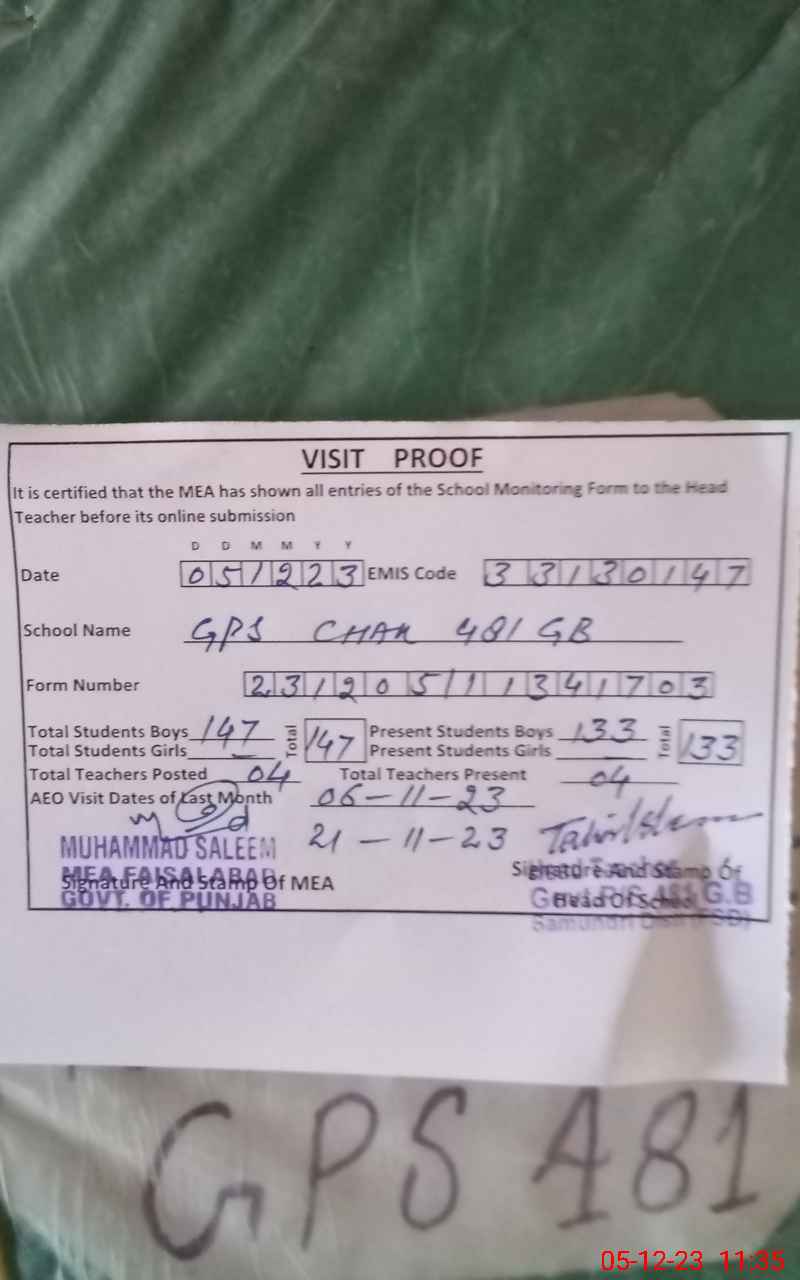 VISIT PROOF
It is certified that the MEA has shown all entries of the School Monitoring Form to the Head
Teacher before its online submission
D D M M Y Y
Date 051223 EMIS Code 33130147
School Name GPS CHAK 481 GB
Form Number 231205111341703
Total Students Boys 147 Total 147 Present Students Boys 133 Total 133
Total Students Girls — Present Students Girls
Total Teachers Posted 04 Total Teachers Present 04
AEO Visit Dates of Last Month 06-11-23
21-11-23
MUHAMMAD SALEEM
MEA FAISALABAD
GOVT. OF PUNJAB
Signature And Stamp Of MEA
Signature And Stamp Of
Head Of School
481 G.B
Samundri
GPS 481
05-12-23 11:35